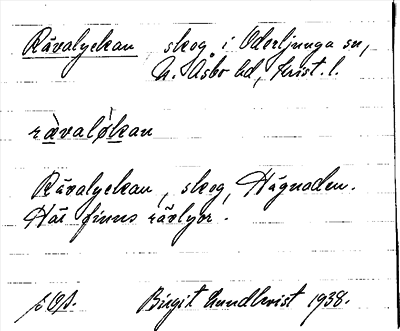 Rävalyckan, skog i Oderljunga sn,
N. Åsbo hd, Krist. l.
rävalǿkan
Rävalyckan, skog, Hägnaden.
Här finns rävlyor.
Birgit Lundkvist 1938.